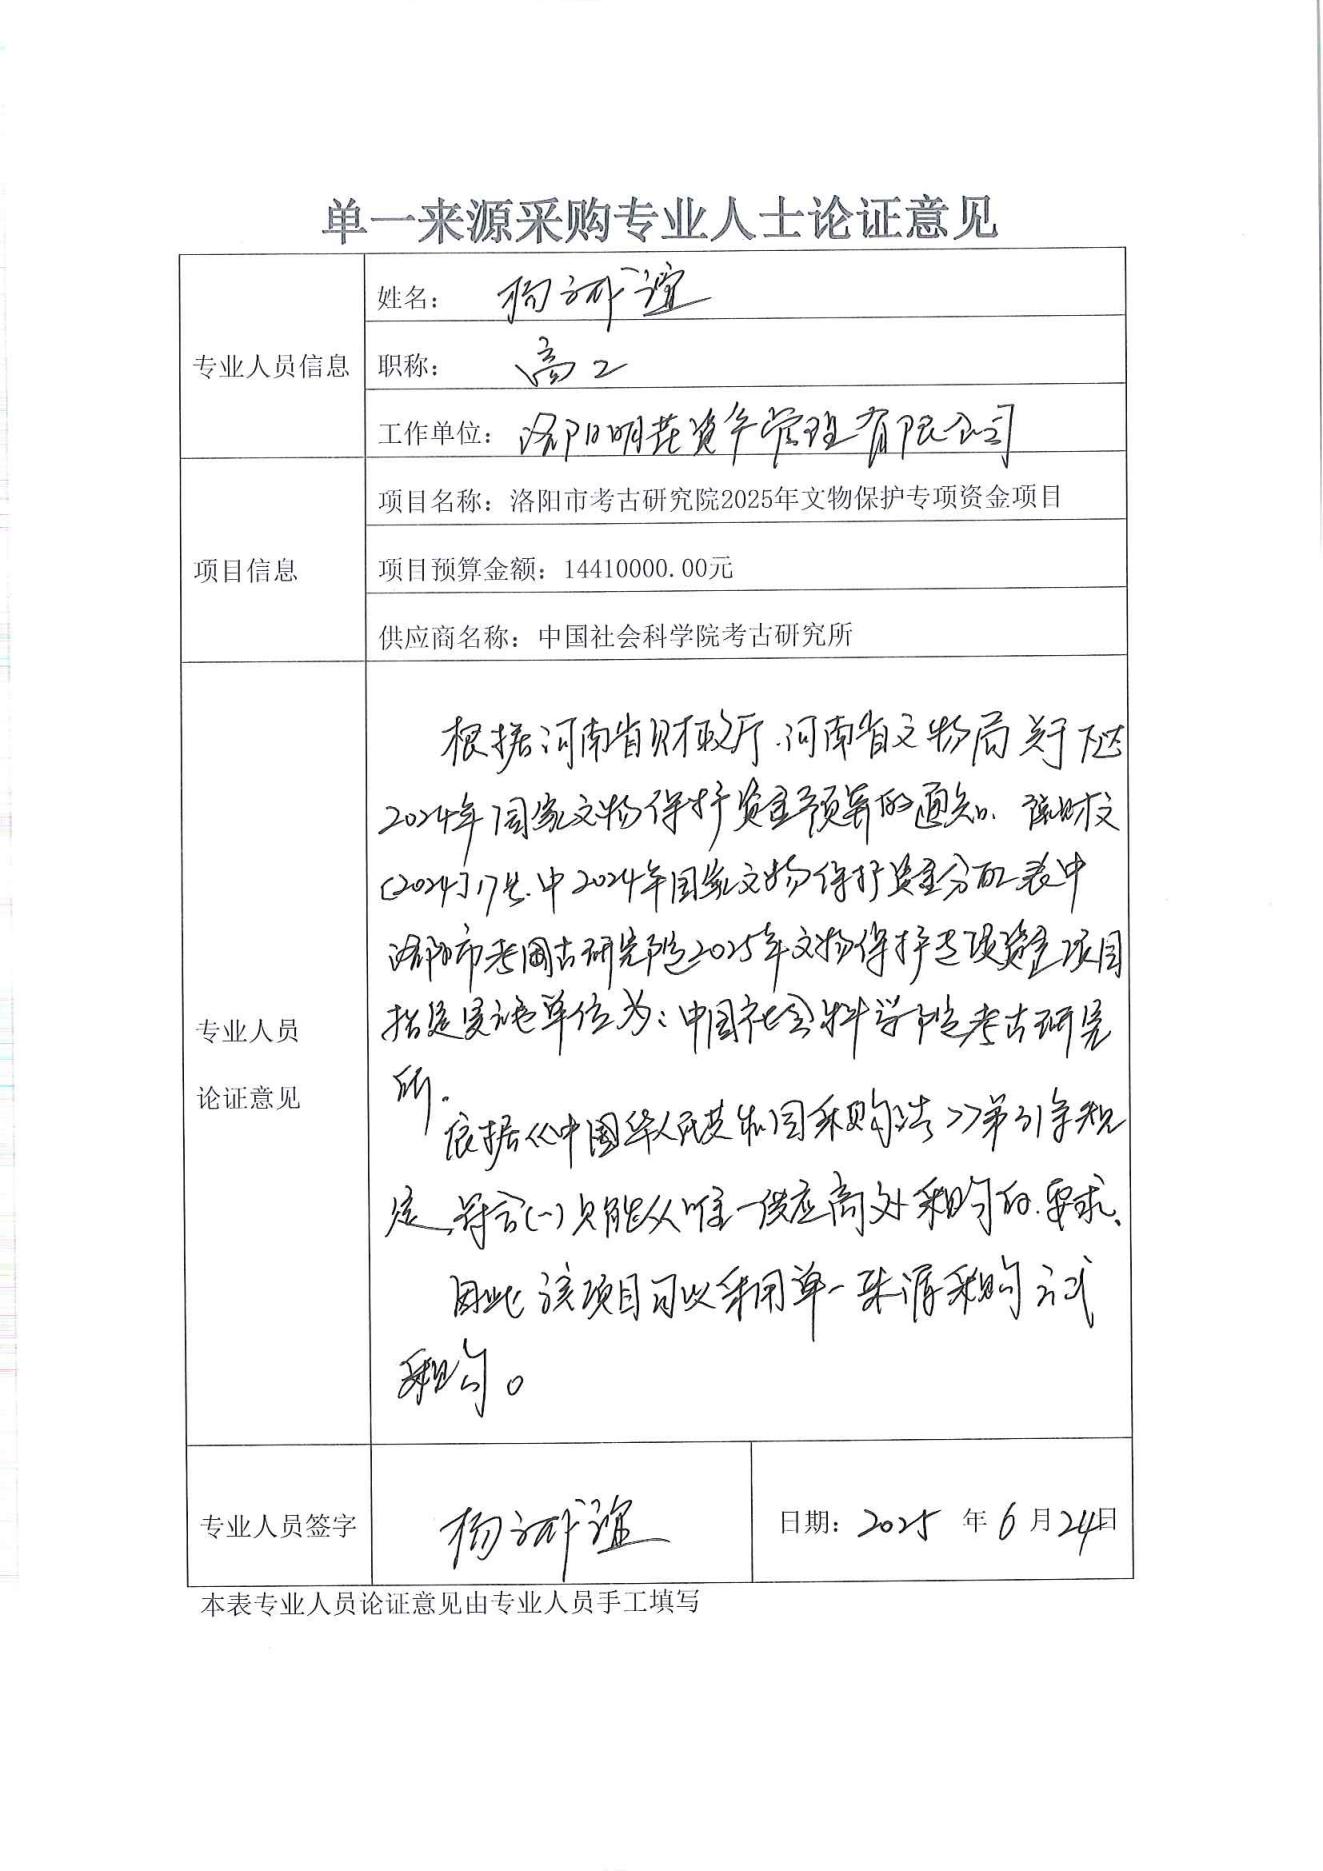 单一来源采购专业人士论证意见
专业人员信息
姓名：杨 谊
职称：高工
工作单位：洛阳明 资产管理有限公司
项目信息
项目名称：洛阳市考古研究院2025年文物保护专项资金项目
项目预算金额：14410000.00元
供应商名称：中国社会科学院考古研究所
专业人员
论证意见
根据河南省财政厅.河南省文物局关于下达
2024年国家文物保护资金预算的通知. 豫财文
〔2024〕17号.中2024年国家文物保护资金分配表中
洛阳市考古研究院2025年文物保护专项资金项目
指定实施单位为：中国社会科学院考古研究
所.
依据《中国华人民共和国采购法》第31条规
定,符合(一)只能从唯一供应商处采购的要求、
因此该项目可以采用单一来源采购方式
采购。
专业人员签字
杨 谊
日期：2025 年 6 月 24日
本表专业人员论证意见由专业人员手工填写